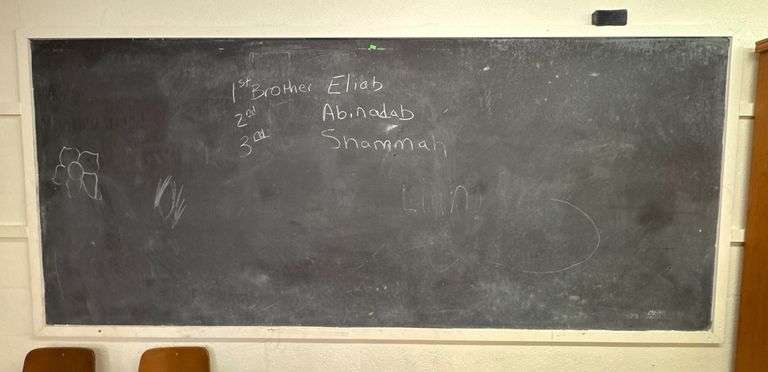 1st Brother Eliab
2nd Abinadab
3rd Shammah